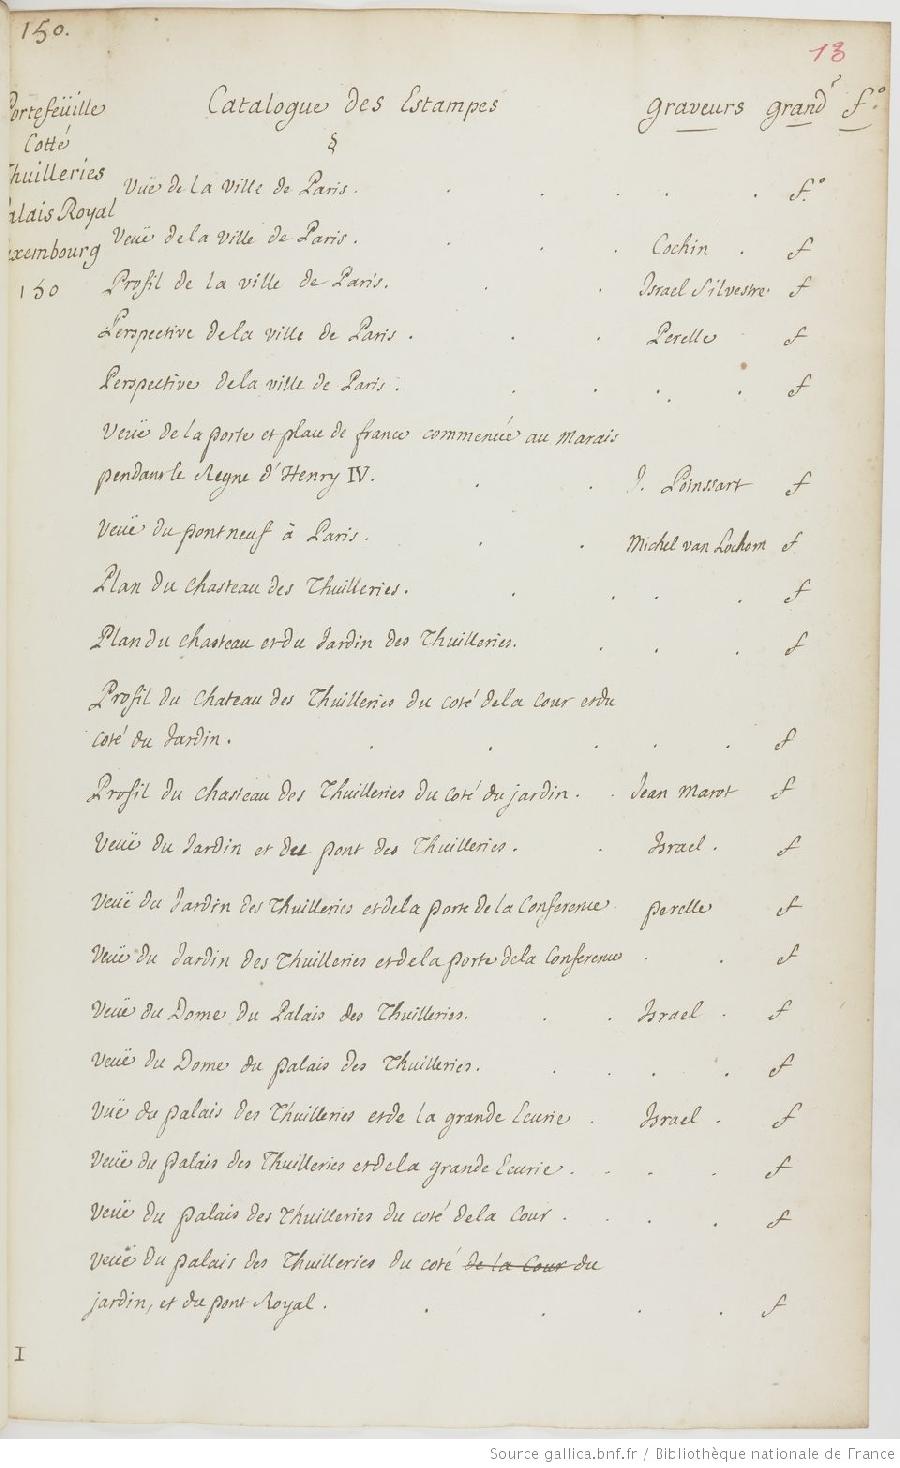 150.
13
Portefeüille Catalogue des Estampes graveurs grandr fo.
Cotté §
Thuilleries
Palais Royal
Luxembourg
150
Vuë de la ville de Paris. . . . . . fo.
Veuë de la ville de Paris. . . . Cochin . f
Profil de la ville de Paris. . . Israel Silvestre. f
Perspective de la ville de Paris . . . Perelle f
Perspective de la ville de Paris. . . . . . f
Veuë de la porte et place de france commencée au Marais
pendant le Regne d'Henry IV. . . J. Poinssart f
Veuë du pont neuf à Paris. . . Michel van Lochom f
Plan du chasteau des Thuilleries. . . . . f
Plan du chasteau et du Jardin des Thuilleries. . . . f
Profil du chateau des Thuilleries du coté de la Cour et du
coté du Jardin. . . . . . f
Profil du chasteau des Thuilleries du coté du jardin. . Jean Marot f
Veuë du Jardin et du pont des Thuilleries. . Israel. f
Veuë du Jardin des Thuilleries et de la porte de la Conference perelle f
Veuë du Jardin des Thuilleries et de la porte de la Conference . . f
Veuë du Dome du Palais des Thuilleries. . . Israel . f
Veuë du Dome du palais des Thuilleries. . . . . f
Vuë du palais des Thuilleries et de la grande Ecurie . Israel . f
Veuë du palais des Thuilleries et de la grande Ecurie . . . . f
Veuë du palais des Thuilleries du coté de la Cour . . . . f
Veuë du palais des Thuilleries du coté de la Cour du
jardin, et du pont Royal. . . . . f
I
Source gallica.bnf.fr / Bibliothèque nationale de France